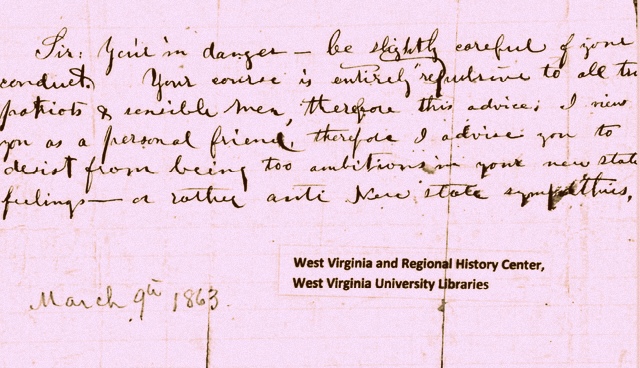 Sir: You're in danger — be slightly careful of your
conduct. Your course is entirely repulsive to all tr
patriots & sensible men, therefore this advice; I view
you as a personal friend, therefore I advise you to
desist from being too ambitions in your new state
feelings — or rather anti New state sympathies,
West Virginia and Regional History Center,
West Virginia University Libraries
March 9th 1863.